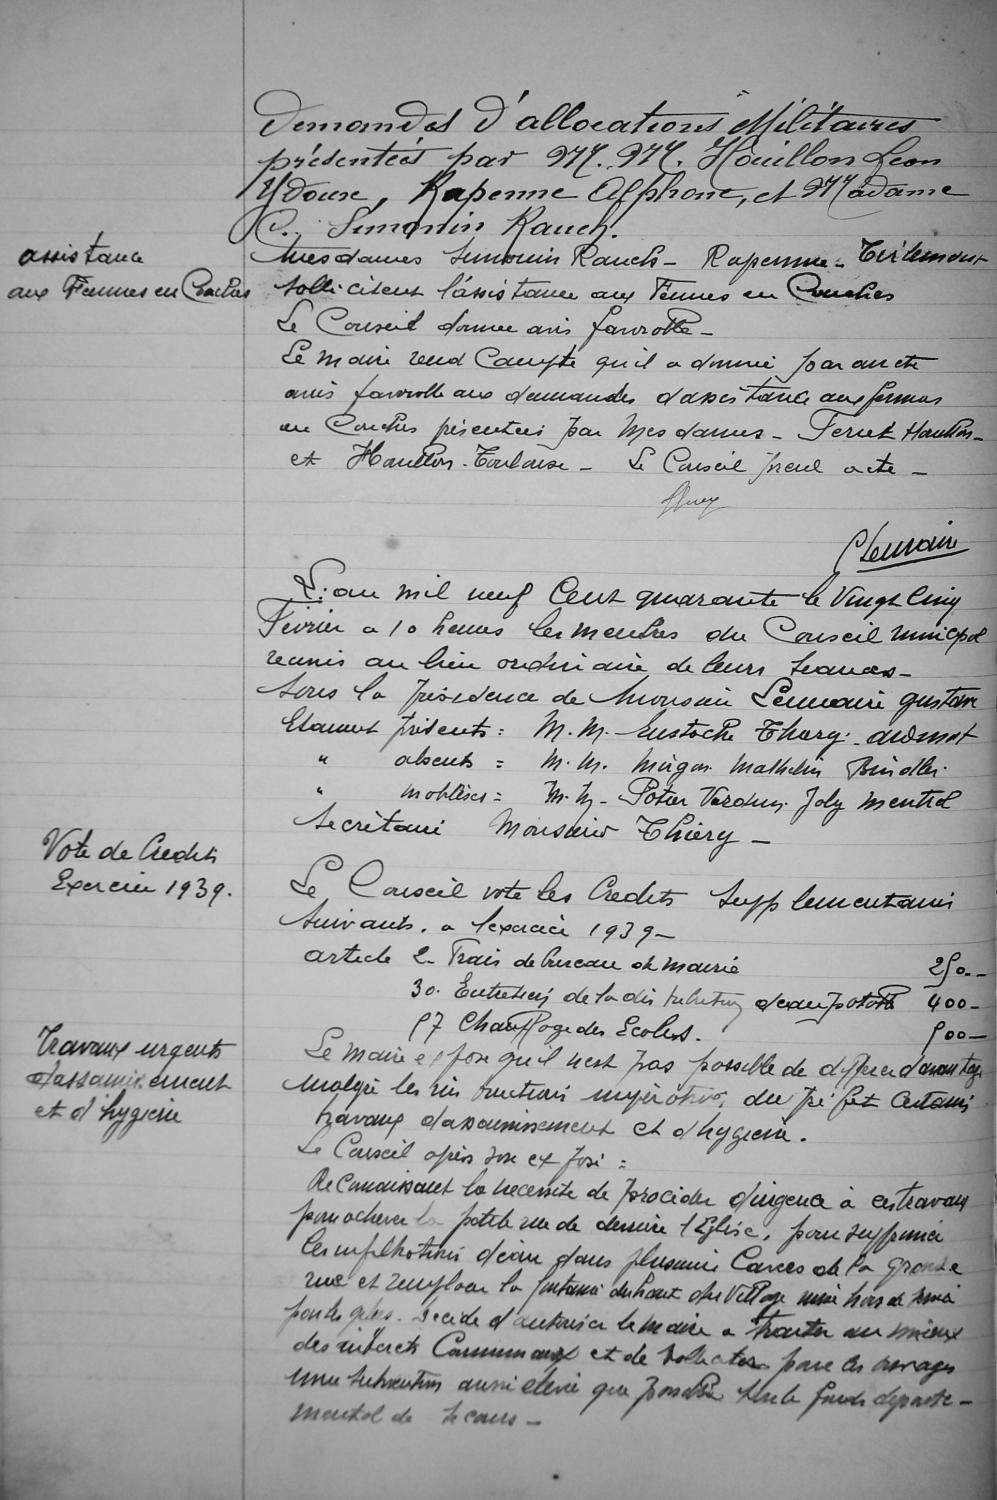 Demandes d'allocations Militaires
présentées par MM. MM. Houillon Leon
Ydoux, Rapenne Alphonse, et Madame
C. Simonin Rauch.
assistance
aux Femmes en Couches
Mesdames Simonin Rauch - Rapenne - Thirlement
sollicitent l'assistance aux Femmes en Couches
Le Conseil donne avis favorable -
Le maire rend Compte qu'il a donné par un acte
avis favorable aux demandes d'assistance aux femmes
en Couches présentées par Mesdames - Houillon -
et Houillon - Toulouse - Le Conseil prend acte -
Lemaire
L'an mil neuf Cent quarante le Vingt Cinq
Février a 10 heures les membres du Conseil municipal
reunis au lieu ordinaire de leurs seances -
sous la présidence de Monsieur Lemaire gustave
Etaient présents = M.M. Eustache Thiery
" absents = M.M. Mathelin Bindler.
" mobilisés = M.M. Potier Verdun Joly
Secrétaire Monsieur Thiery -
Vote de Crédits
Exercice 1939.
Le Conseil vote les Credits Supplementaires
Suivants. a l'exercice 1939 -
article 2 - Frais de bureau de mairie 250 -
30. Entretien de la distribution d'eau potable 400 -
57 Chauffage des Ecoles. 500 -
Travaux urgents
d'assainissement
et d'hygiène
Le Maire expose qu'il n'est pas possible de différer davantage
malgré les instructions impératives du Préfet Certains
travaux d'assainissement et d'hygiene.
Le Conseil après son exposé =
Reconnaissant la necessité de procéder d'urgence à ces travaux
pour achever la petite rue de derrière l'Eglise, pour supprimer
les infiltrations d'eau dans plusieurs Caves de la Grande
rue et remplacer la fontaine du haut du Village mise hors de service
par le gel. Decide d'autoriser le maire a traiter au mieux
des interets Communaux et de solliciter pour les ouvrages
une subvention aussi elevée que possible sur le fonds departe-
mental de secours -